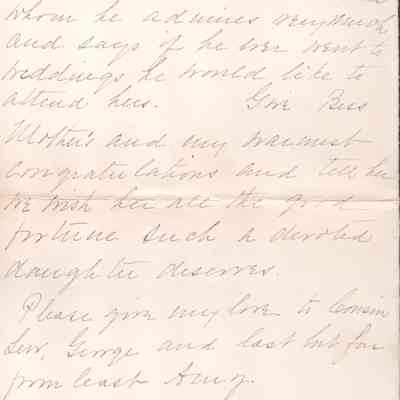 whom he admires very much
and says if he ever went to
weddings he would like to
attend hers. Give Bess
Mother's and my warmest
congratulations and tell her
we wish her all the good
fortune such a devoted
daughter deserves.
Please give my love to Cousin
Lew, George and last but far
from least Amy.